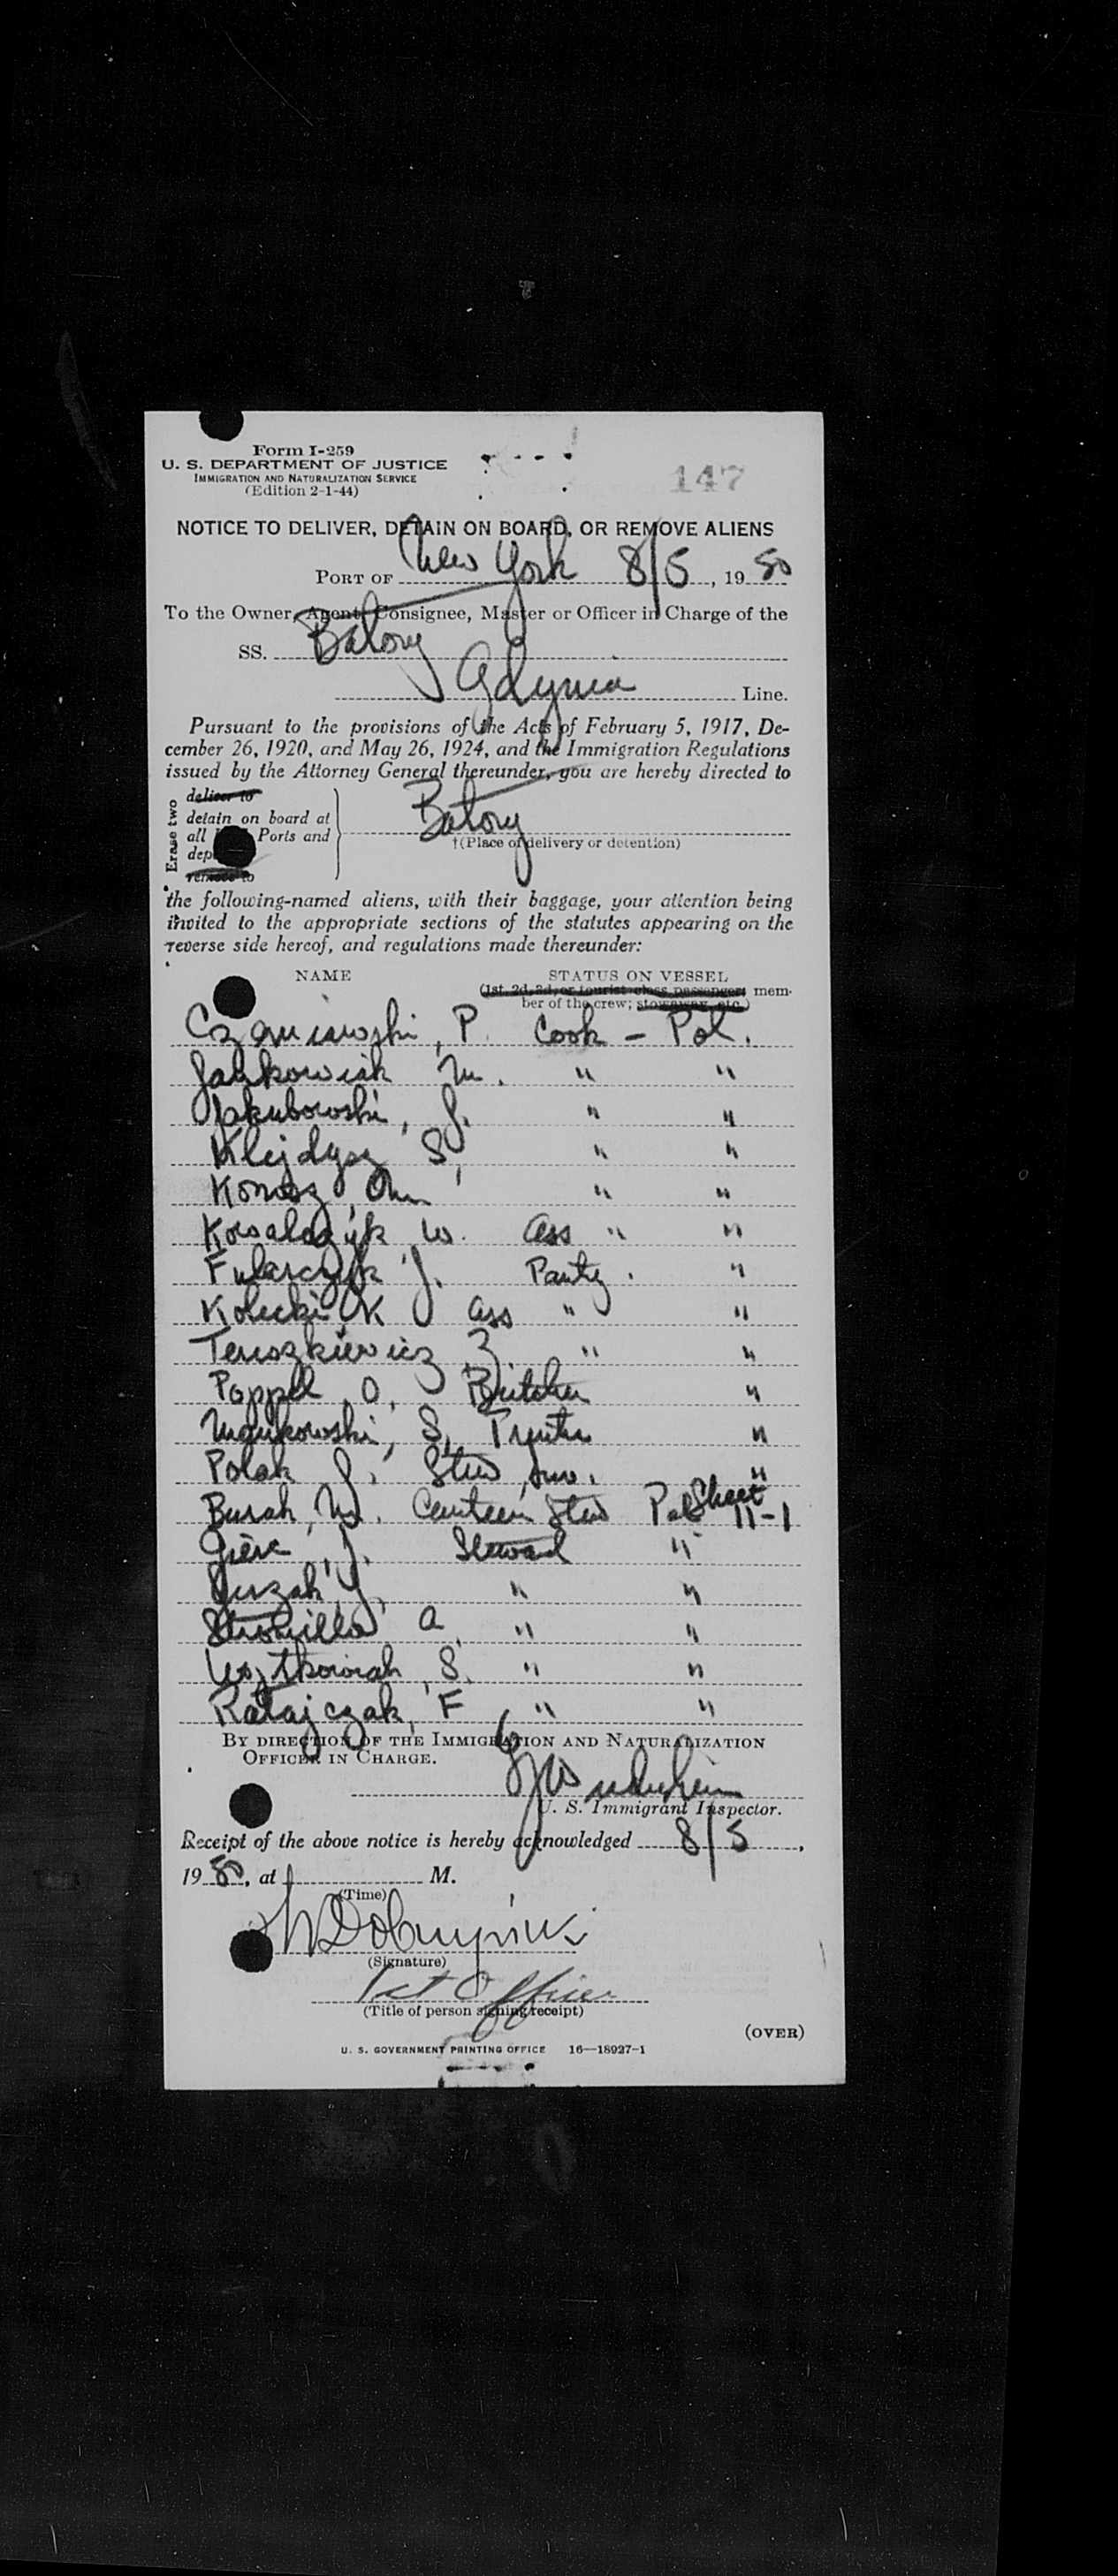 Form I-259
U. S. DEPARTMENT OF JUSTICE
IMMIGRATION AND NATURALIZATION SERVICE
(Edition 2-1-44)
147
NOTICE TO DELIVER, DETAIN ON BOARD, OR REMOVE ALIENS
PORT OF New York 8/5, 1950
To the Owner, Agent, Consignee, Master or Officer in Charge of the
SS. Batory
Gdynia Line.
Pursuant to the provisions of the Acts of February 5, 1917, De-
cember 26, 1920, and May 26, 1924, and the Immigration Regulations
issued by the Attorney General thereunder, you are hereby directed to
Erase two
deliver to
detain on board at
all Ports and
remove to
Batory
†(Place of delivery or detention)
the following-named aliens, with their baggage, your attention being
invited to the appropriate sections of the statutes appearing on the
reverse side hereof, and regulations made thereunder:
NAME STATUS ON VESSEL
(1st, 2d, 3d, or tourist class passenger; mem-
ber of the crew; stowaway, etc.)
P. Cook - Pol.
Jankowiak M. " "
Jakubowski, J. " "
Klejdysz S, " "
" "
Kowalczyk W. Ass " "
Fularczyk J. "
Kolecki K Ass " "
Z " "
Poppel O, "
S, "
Polak J. Stew "
M. Canteen Stew Pol Sheet 11-1
J. Steward "
" "
A. " "
S. " "
Ratajczak, F " "
BY DIRECTION OF THE IMMIGRATION AND NATURALIZATION
OFFICER IN CHARGE.
U. S. Immigrant Inspector.
Receipt of the above notice is hereby acknowledged 8/5,
1950, at M.
(Time)
(Signature)
1st Officer
(Title of person signing receipt)
(OVER)
U. S. GOVERNMENT PRINTING OFFICE 16—18927-1